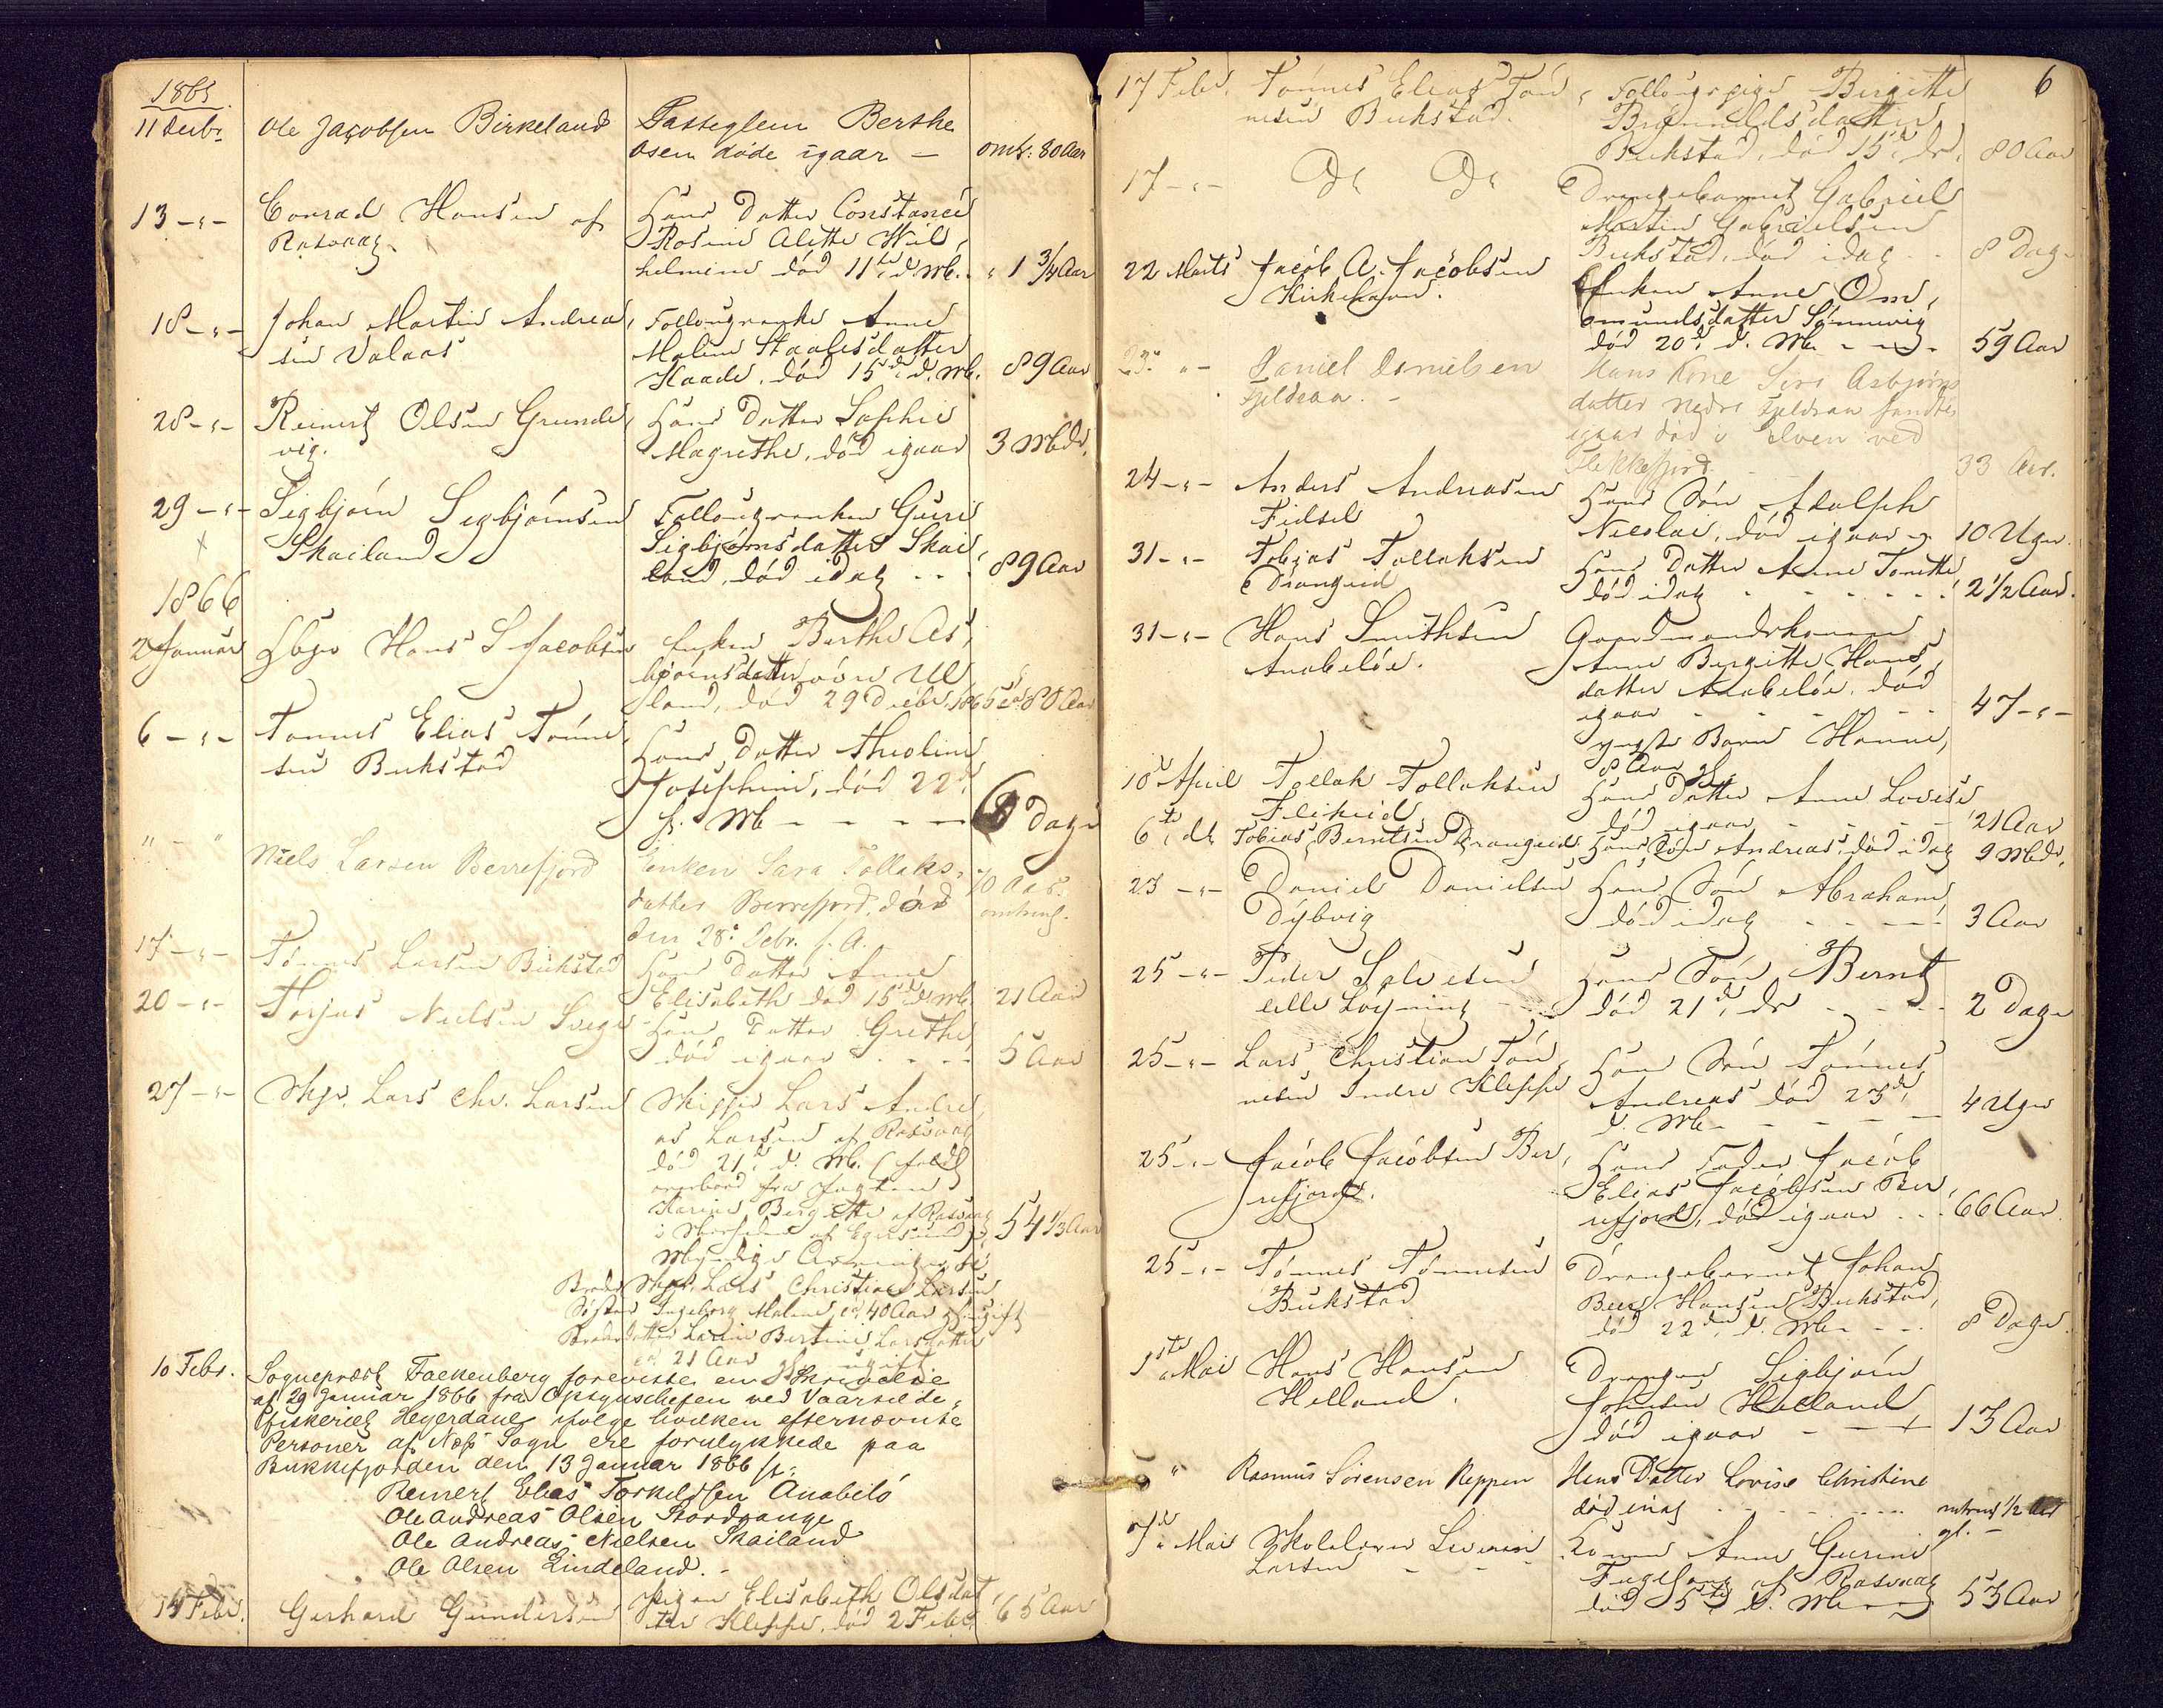 1865
11 Decbr. Ole Jacobsen Birkeland Fattiglem Berthe
Osen døde igaar — omtr: 80 Aar
13 -„- Conrad Hansen af Hans Datter Constance
Rasvaag. Rosine Alette Wil,
helmine død 11te d. Mb. 1 3/4 Aar
18 -„- Johan Martin Andrea, Follougeenke Anne
sen Valaas Malene Staalesdatter
Haade. død 15de d. Mb. 89 Aar
28 -„- Reinert Olsen Grunde, Hans Datter Sophie
vig. Magrethe, død igaar 3 Mbdr.
29 -„- Sigbjørn Sigbjørnsen Follougeenken Guri
Skailand Sigbjørnsdatter Skai,
land, død idag 89 Aar
1866
2 Januar Hans S Jacobsen Enken Berthe As,
bjørnsdatter øvre Ul
land, død 29 Decbr. 1865 ca. 80 Aar
6 -„- Tønnes Elias Tønne,
sen Bukstad Hans Datter Theoline
Josephine, død 22de
f. Mb - - - - Dage
„ - „ Niels Larsen Berrefjord Enken Sara Tollaks,
datter Berrefjord, død 70 Aar
den 28de Decbr. f. A. omtrent.
17 -„- Tønnes Larsen Bukstad Hans Datter Anne
Elisabeth død 15de d. Mb. 21 Aar
20 -„- Torjus Nielsen Svege Hans Datter Grethe,
død igaar 5 Aar
27 -„- Skpr. Lars Chr. Larsen Skipper Lars Andre,
as Larsen af Rasvaag
død 21de d. Mb. (faldt
overbord fra Jagten
Karine Bergitte af Rasvaag
i Nærheden af Egersund) 54 1/3 Aar
Myndige Arvinger
Broder Skpr. Lars Christian Larsen
Søster Ingeborg Malene ca. 40 Aar gl ugift
Broderdatter Larine Bertine Larsdatter
ca. 21 Aar gl. ugift.
10 Febr. Sogneprest Falkenberg foreviste en Skrivelse
af 29 Januar 1866 fra Opsynschefen ved Vaarsilde,
fiskeriet Heyerdahl ifølge hvilken efternævnte
Personer af Næs Sogn ere forulykkede paa
Bukkefjorden den 13 Januar 1866
Reinert Elias Torkildsen Anabelø
Ole Andreas Olsen Stordrange
Ole Andreas Nielsen Skailand
Ole Olsen Lindeland. -
14 Febr. Gerhard Gundersen Pigen Elisabeth Olsdat,
ter Kleppe, død 2 Febr. 65 Aar
6
17 Febr. Tønnes Elias Tøn, Follougspige Birgitte
nesen Bukstad. Brynnildsdatter
Bukstad, død 15de ds. 80 Aar
17 -„- Do Do Drengebarnet Gabriel
Martin Gabrielsen
Bukstad, død idag 8 Dage
22 Marts Jacob A. Jacobsen Enken Anne Om,
Kirkehavn. omundsdatter Sønnevig
død 20de d. Mb. 59 Aar
23 „ - Daniel Danielsen Hans Kone Siri Asbjørns
Fjeldsaa. - datter nedre Fjeldsaa fandtes
igaar død i Elven ved
Flekkefjord. 33 Aar.
24 -„- Anders Andreasen Hans Søn Adolph
Fidsel Nicolai, død igaar 10 Uger.
31 -„- Tobias Tollaksen Hans Datter Anne Tonette
Drangeid død idag 2 1/2 Aar.
31 -„- Hans Smithsen Gaardmandskonen
Anabeløe. Anne Bergitte Hans,
datter Anabeløe, død
igaar 47 -„-
yngste Barn Hanne,
8 Aar gl.
10de April Tollak Tollaksen Hans Datter Anne Lovise
Flikeid død igaar 21 Aar
6te ds. Tobias Berntsen Drangeid Hans Søn Andreas, død idag 9 Mbdr.
23 -„- Daniel Danielsen Hans Søn Abraham,
Dybvig død idag 3 Aar
25 -„- Peder Salvesen Hans Søn Bernt
Lille Løgning død 21de ds 2 Dage
25 -„- Lars Christian Tøn, Hans Søn Tønnes
nesen Indre Kleppe Andreas død 23de
d. Mb. 4 Uger
25 -„- Jacob Jacobsen Ber, Hans Fader Jacob
refjord. Elias Jacobsen Ber,
refjord, død igaar 66 Aar.
25 -„- Tønnes Tønnesen Drengebarnet Johan
Bukstad Hansen Bukstad,
død 22de d. Mb. 8 Dage.
1ste Mai Hans Hansen Drengen Sigbjørn
Helland. Johnsen Helland
død igaar 13 Aar
„ Rasmus Sørensen Reppen Hans Datter Lovise Christine
død idag omtrent 1/2 Aar
gl. -
7de Mai Skolelærer Severin Konen Anne Gurine
Larsen Fuglsang af Rasvaag
død 5te d. Mb. 53 Aar